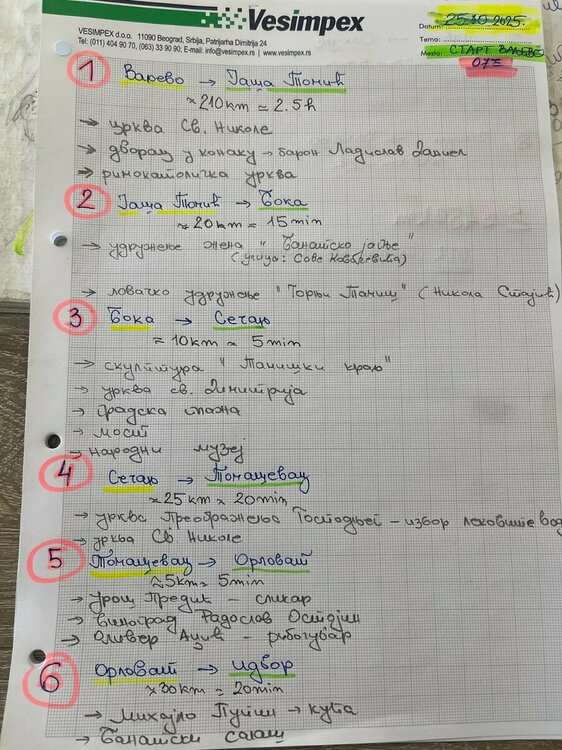 Vesimpex
VESIMPEX d.o.o. 11090 Beograd, Srbija, Patrijarha Dimitrija 24
Tel: (011) 404 90 70, (063) 33 90 90; E-mail: info@vesimpex.rs | www.vesimpex.rs
Datum: 25.10.2025.
Tema:
Mesto: СТАРТ ВАЉЕВО
07
1 Ваљево → Јаша Томић
≈ 210km = 2.5h
→ црква Св. Николе
→ дворац у конаку → барон Ладислав Даниел
→ римокатоличка црква
2 Јаша Томић → Бока
≈ 20km = 15min
→ удружење жена "Банатско јање"
(улица: Саве Ковачевића)
→ ловачко удружење "Горњи Тамиш" (Никола Стајић)
3 Бока → Сечањ
≈ 10km ≈ 5min
→ скулптура "Тамишки краљ"
→ црква св. Димитрија
→ градска плажа
→ мост
→ народни музеј
4 Сечањ → Томашевац
≈ 25km ≈ 20min
→ црква Преображења Господњег – извор лековите вод
→ црква Св Николе
5 Томашевац → Орловат
≈ 5km = 5min
→ Урош Предић – сликар
→ виноград Радослав Остојин
→ Оливер – рибочувар
6 Орловат → Идвор
≈ 30km = 20min
→ Михајло Пупин → кућа
→ Банатски салаш